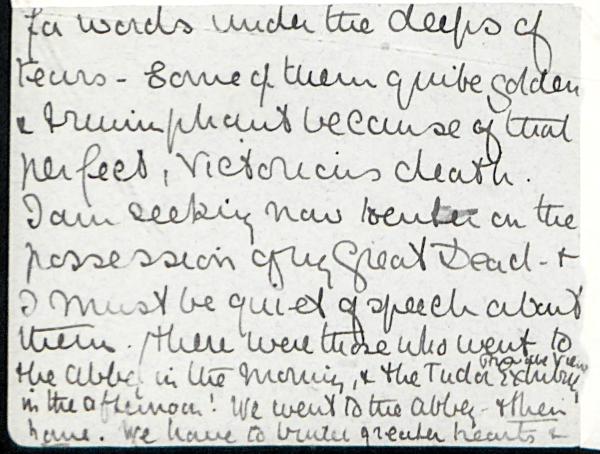 for words under the deeps of
tears - Some of them quite golden
& triumphant because of that
perfect, Victorious death.
I am seeking now to enter on the
possession of my Great Dead - &
I must be quiet of speech about
them. There were those who went to
Private View
the Abbey in the Morning, & the Tudor Exhibn
in the afternoon! We went to the Abbey - & then
home. We have to bring greater hearts &